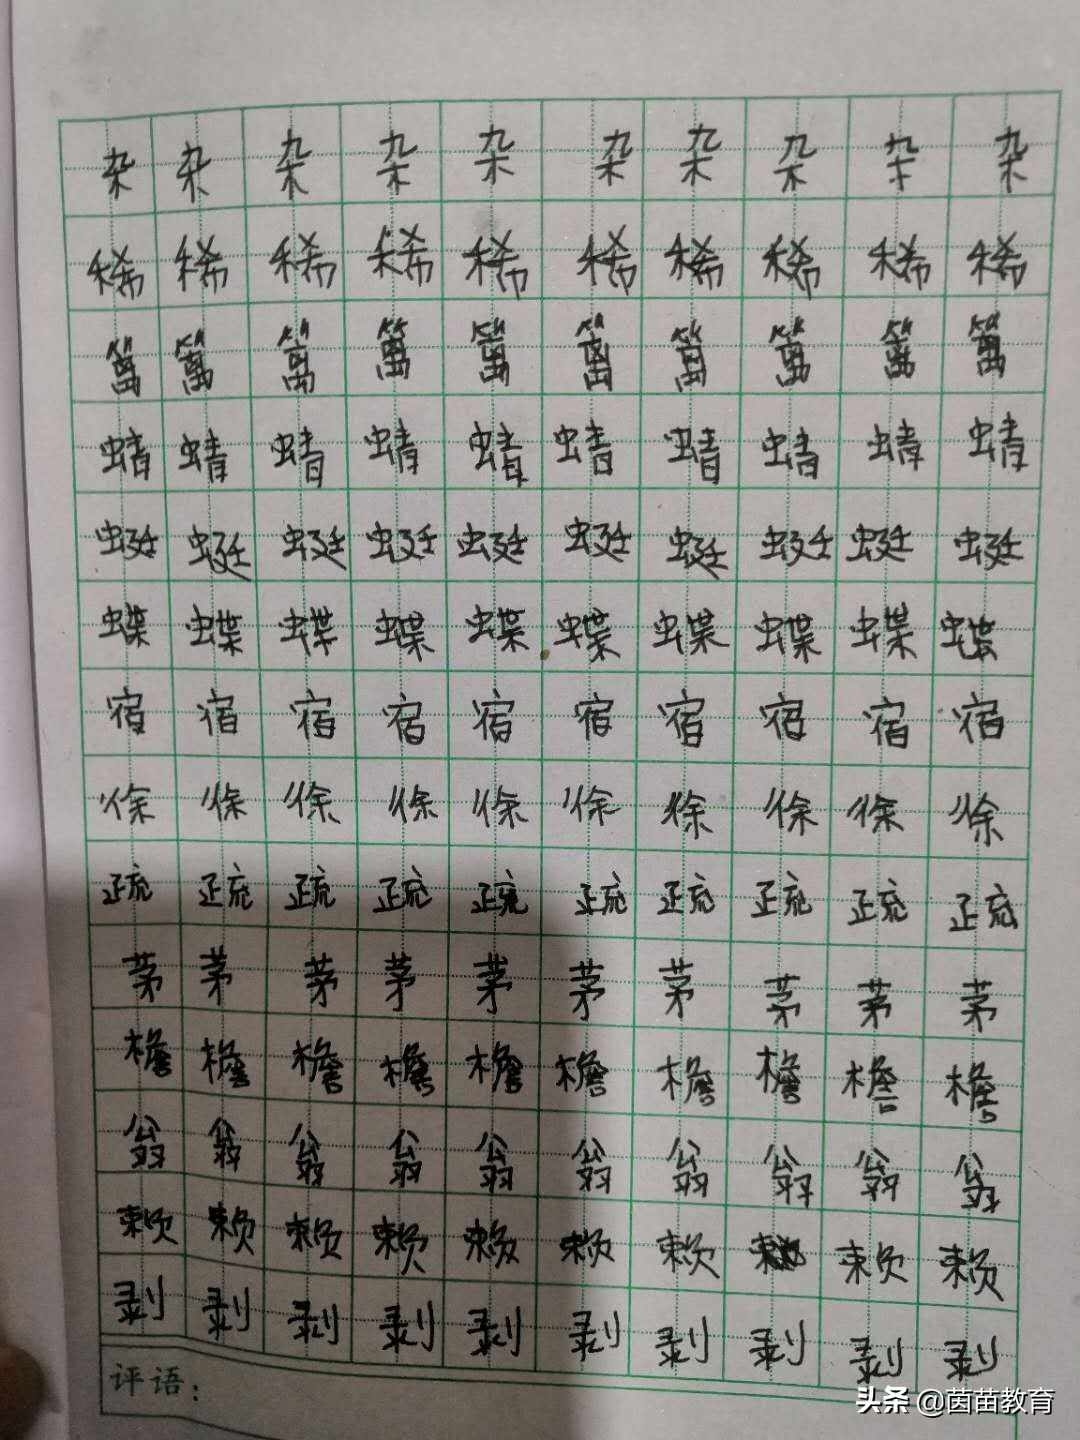 杂杂杂杂杂杂杂杂杂杂
稀稀稀稀稀稀稀稀稀稀
篱篱篱篱篱篱篱篱篱篱
蜻蜻蜻蜻蜻蜻蜻蜻蜻蜻
蜓蜓蜓蜓蜓蜓蜓蜓蜓蜓
蝶蝶蝶蝶蝶蝶蝶蝶蝶蝶
宿宿宿宿宿宿宿宿宿宿
徐徐徐徐徐徐徐徐徐徐
疏疏疏疏疏疏疏疏疏疏
茅茅茅茅茅茅茅茅茅茅
檐檐檐檐檐檐檐檐檐檐
翁翁翁翁翁翁翁翁翁翁
赖赖赖赖赖赖赖赖赖赖
剥剥剥剥剥剥剥剥剥剥
评语：
头条 @茵苗教育